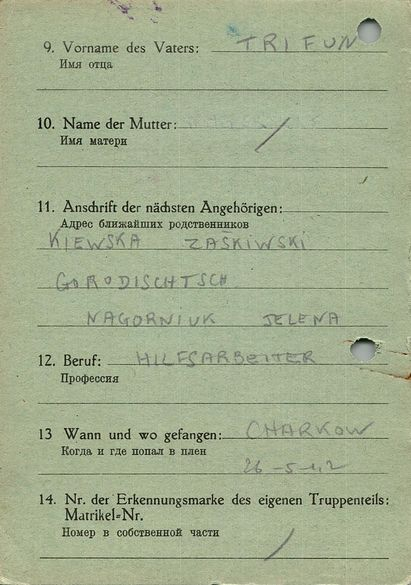 9. Vorname des Vaters: TRIFUN
Имя отца
10. Name der Mutter: /
Имя матери
11. Anschrift der nächsten Angehörigen:
Адрес ближайших родственников
KIEWSKA ZAŠKIWSKI
GORODISCHTSCH
NAGORNIUK JELENA
12. Beruf: HILFSARBEITER
Профессия
13 Wann und wo gefangen: CHARKOW
Когда и где попал в плен
26-5-42
14. Nr. der Erkennungsmarke des eigenen Truppenteils:
Matrikel=Nr.
Номер в собственной части /